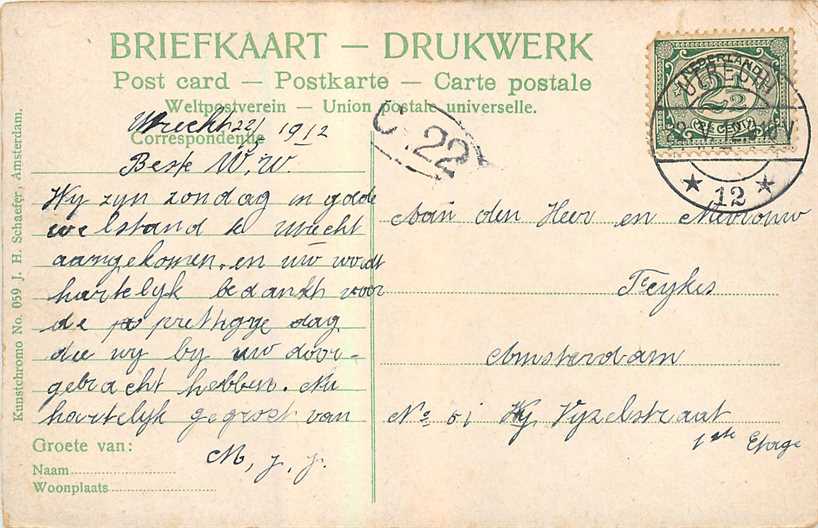 BRIEFKAART — DRUKWERK
Post card — Postkarte — Carte postale
Weltpostverein — Union postale universelle.
Utrecht 22/1 1912
Correspondentie
Beste W.W.
Wy zyn zondag in goede
welstand te Utrecht
aangekomen. en uw wordt
hartelyk bedankt voor
de prettige dag
die wy by uw door-
gebracht hebben. Nu
hartelyk gegroet van
M, J, J.
Groete van:
Naam
Woonplaats
Kunstchromo No. 059 J. H. Schaefer, Amsterdam.
C. 22
NEDERLAND
2½
2½ CENT
UTRECHT
12
Aan den Heer en Mevrouw
Feykes
Amsterdam
No 51 Vyzelstraat
1ste Etage